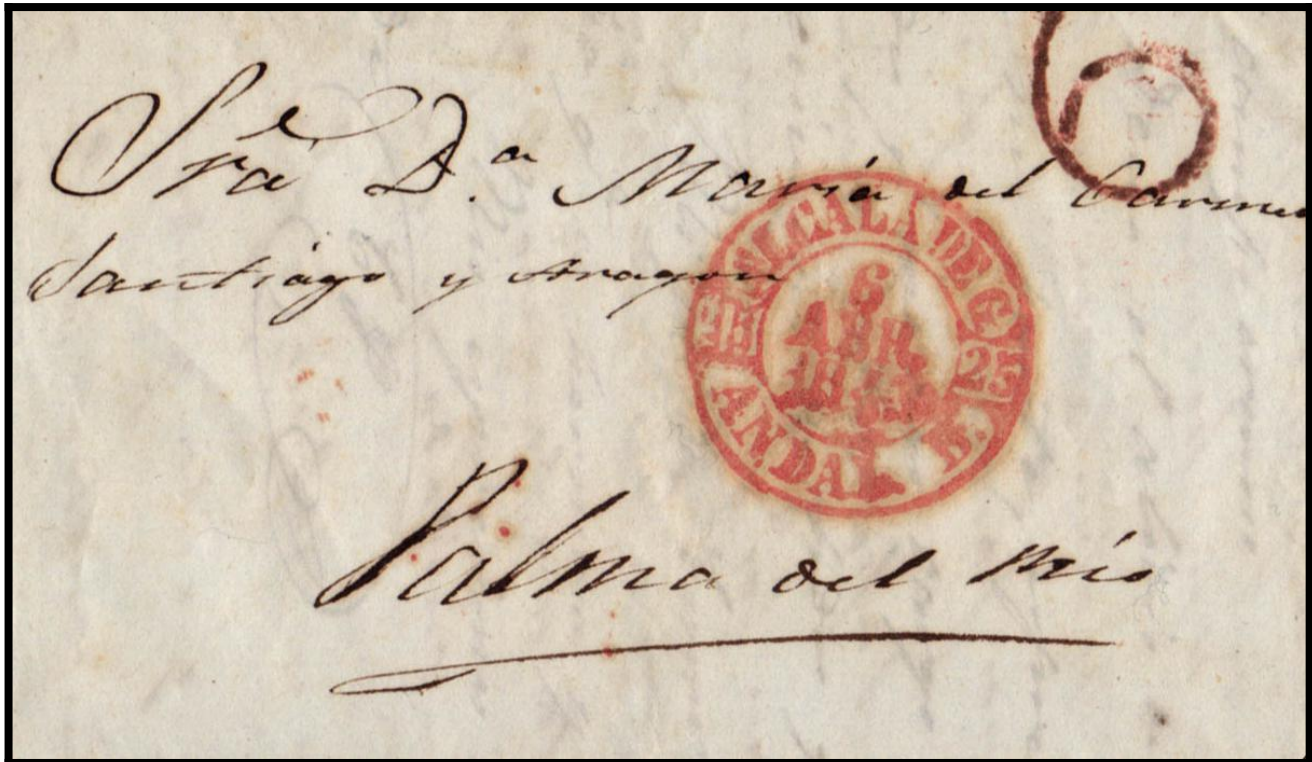 6
Sra D.ª María del Carmen
Santiágo y Aragon
ALCALA DE G.
6
ABR.
25
ANDAL. B.
Palma del Río